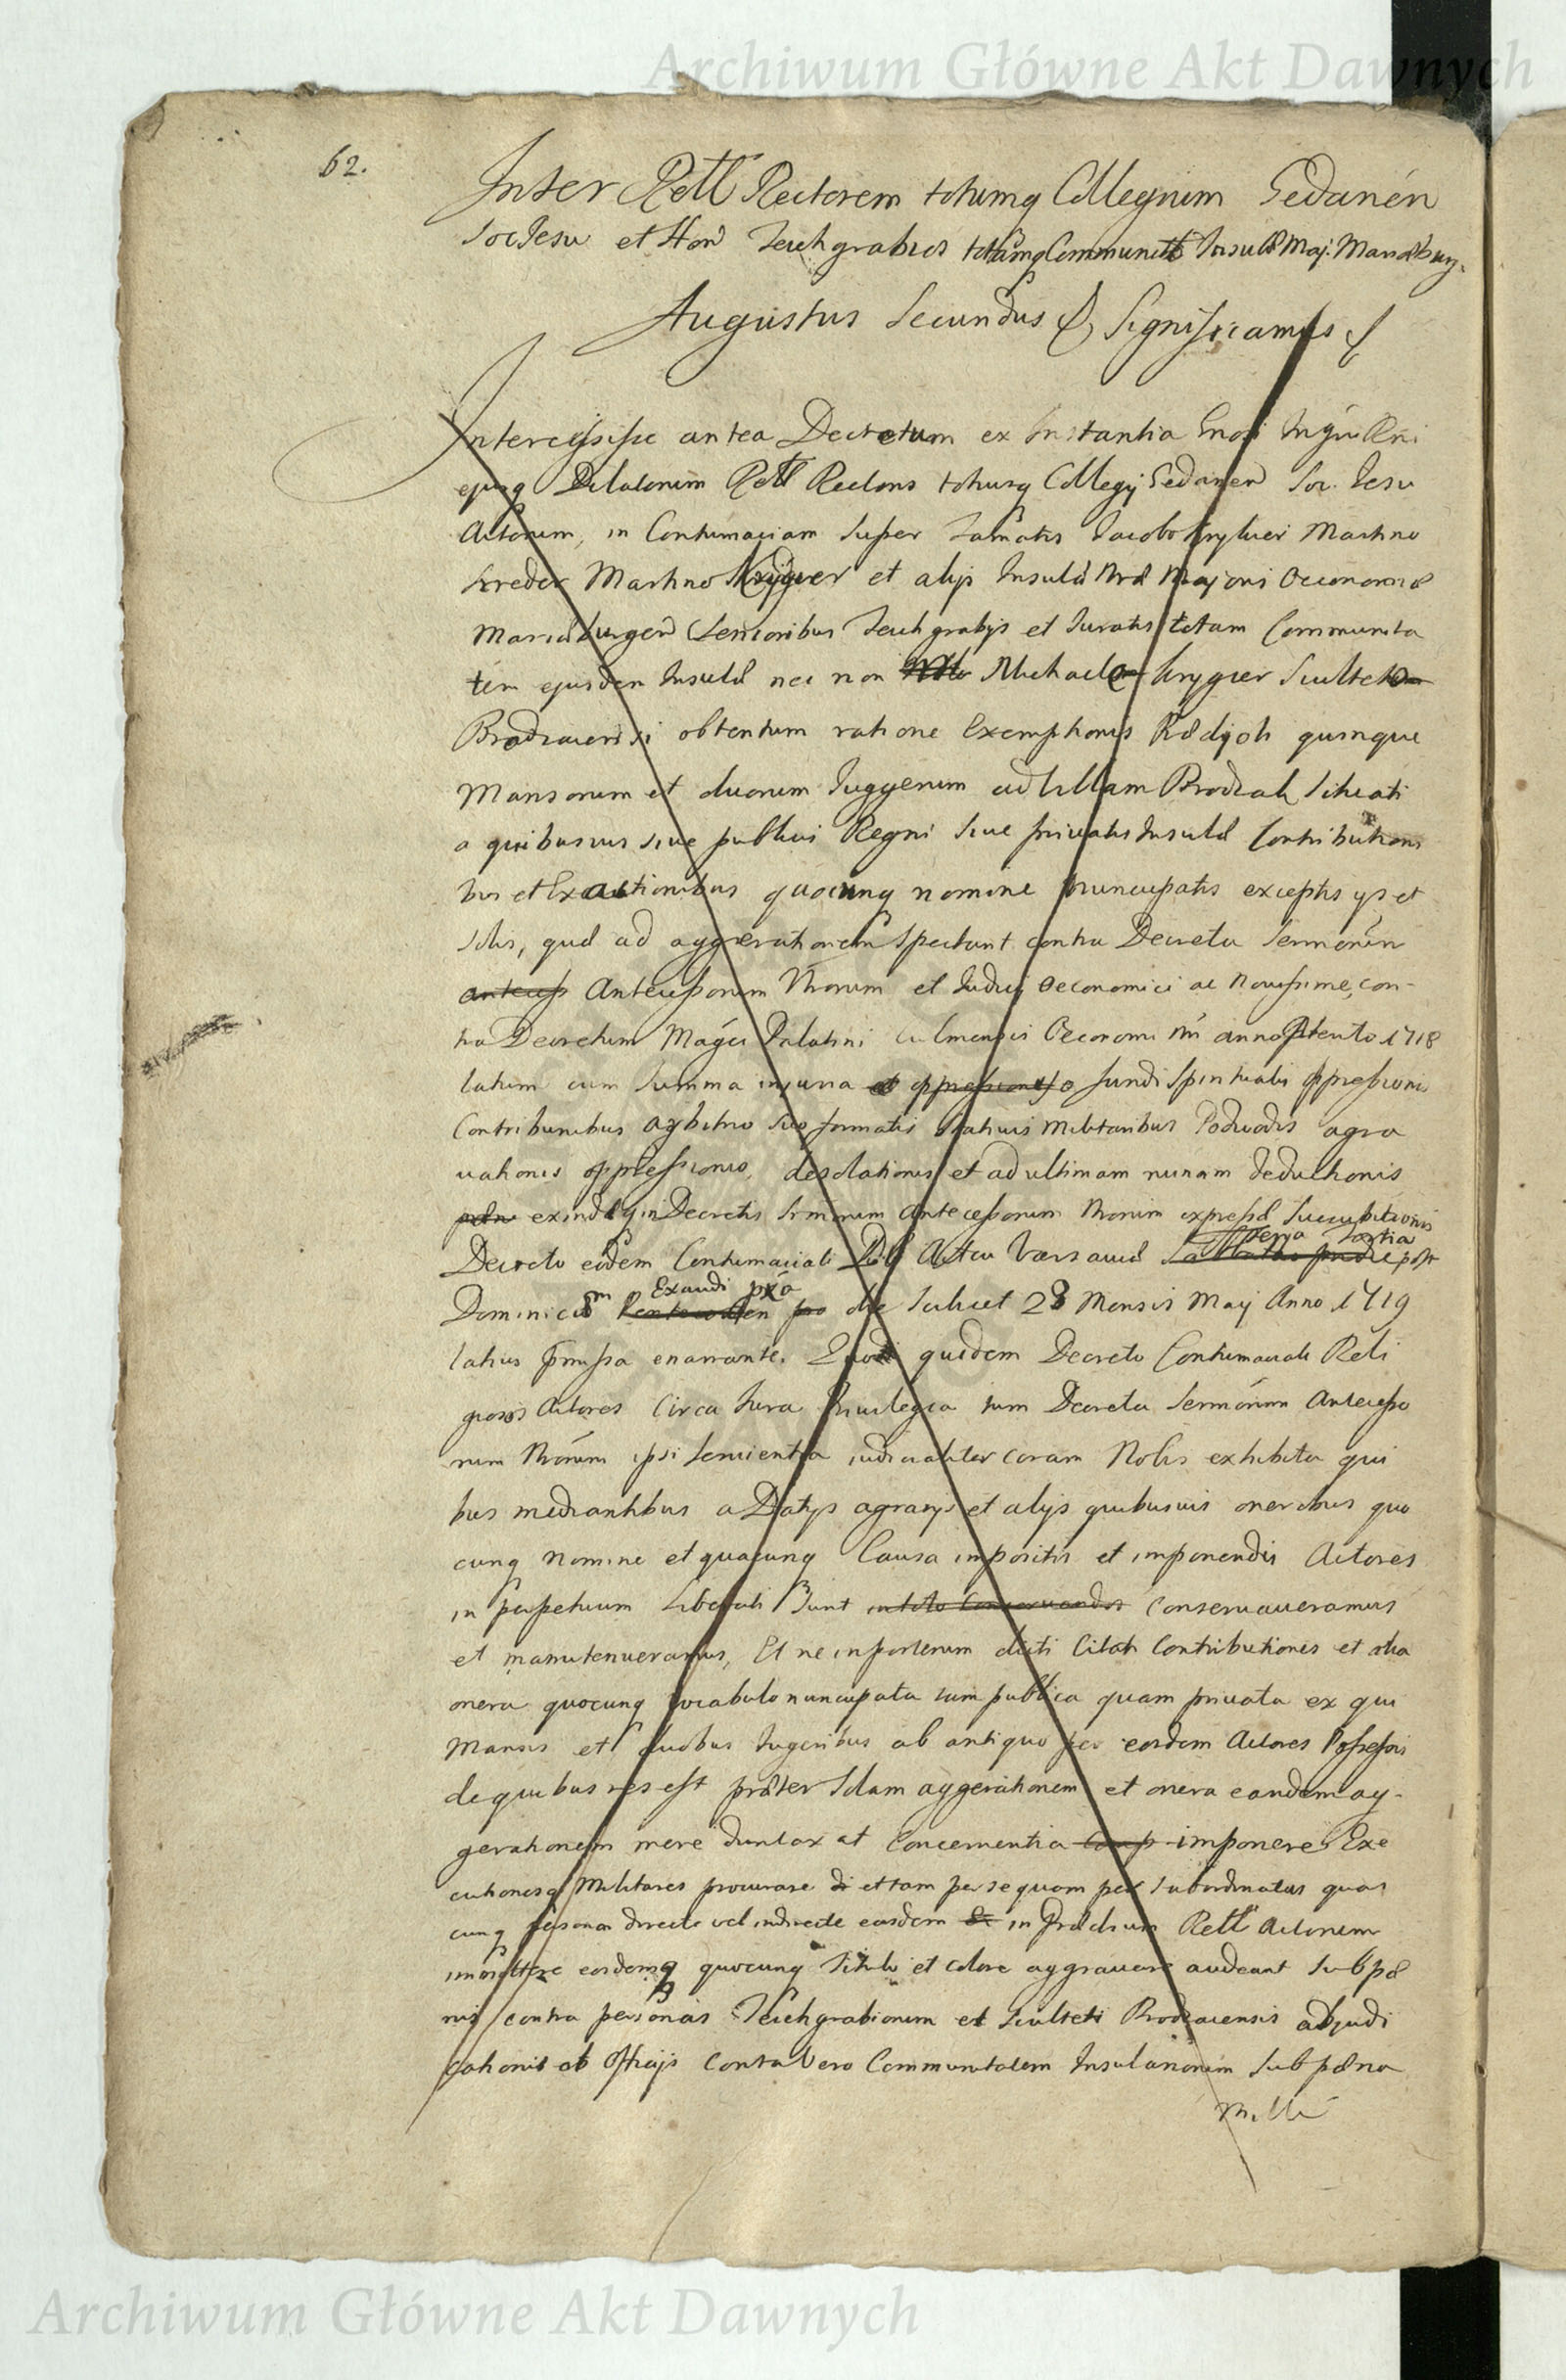 Archiwum Główne Akt Dawnych
62.
Inter Rell Rectorem totumq Collegium Gedanen
Soc Jesu et Hon Teichgrabios totamq Communitt Insulæ Maj: Mariæburg.
Augustus Secundus & Significamus &
Intercessisse antea Decretum ex Instantia
ejusq Delatorum Rell Rectoris totiusq Collegij Gedanen Soc. Jesu
Actorum, in Contumaciam super famatis Jacobo Kryher Martino
Kreder Martino Krÿger et alijs Insulæ Nræ Majoris Oeconomiæ
Mariæburgen Senioribus Teichgrabijs et Juratis totam Communita
tem ejusdem Insulæ nec non Michaele Krygier Sculteto
Brodzacensi obtentum ratione Exemptionis Prædijoli quinque
Mansorum et duorum Jugerum ad Villam Brodzak Situati
a quibusvis sive publicis Regni sive privatis Insulæ Contribution
bus et Exactionibus quocunq nomine nuncupatis exceptis ijs et
solis, quæ ad aggerationem spectant contra Decreta Sermorum
antecess Antecessorum Nrorum et Judicij Oeconomici ac novissime con-
tra Decretum Magci Palatini Culmensis Oeconomi Nri anno 1718
latum cum summa injuria et oppressione fundi Spiritualis oppressionis
Contribunibus arbitrio suo formatis Stativis Militaribus Podwodis agra
vationis oppressionis, desolationis et ad ultimam ruinam deductionis
exindeq in Decretis Srmorum Antecessorum Nrorum expressæ Succubitionis
Decreto eodem Contumaciali Actu Varsaviæ Feria Tertia post
Dominicam Exaudi pxa die Scilicet 23 Mensis Maij Anno 1719
latius præmissa enarrante. Quo quidem Decreto Contumaciali Reli
giosos Actores Circa Jura Privilegia tum Decreta Sermorum Antecesso
rum Nrorum ipsis Servientia judicialiter coram Nobis exhibita qui
bus mediantibus a Datijs agrarijs et alijs quibusvis oneribus quo
cunq nomine et quacunq Causa impositis et imponendis Actores
in perpetuum Liberati sunt in toto Conservandos conservaveramus
et manutenueramus, Et ne inposterum dicti Citati Contributiones et alia
onera quocunq vocabulo nuncupata tum publica quam privata ex qui
Mansis et duobus Jugeribus ab antiquo per eosdem Actores Possessis
de quibus res est præter Solam aggerationem et onera eandem ag-
gerationem mere duntaxat Concernentia imponere Exe
cutionesq Militares procurare et tam per se quam per Subordinatas quas
cunq personas directe vel indirecte easdem in Prædium Rell Actorum
immittere eosdemq quocunq titulo et colore aggravare audeant sub pæ
nis contra personas Teichgrabiorum et Sculteti Brodzacensis adjudi
cationis ab Officijs Contra Vero Communitatem Insulanorum sub pæna
Mille
Archiwum Główne Akt Dawnych